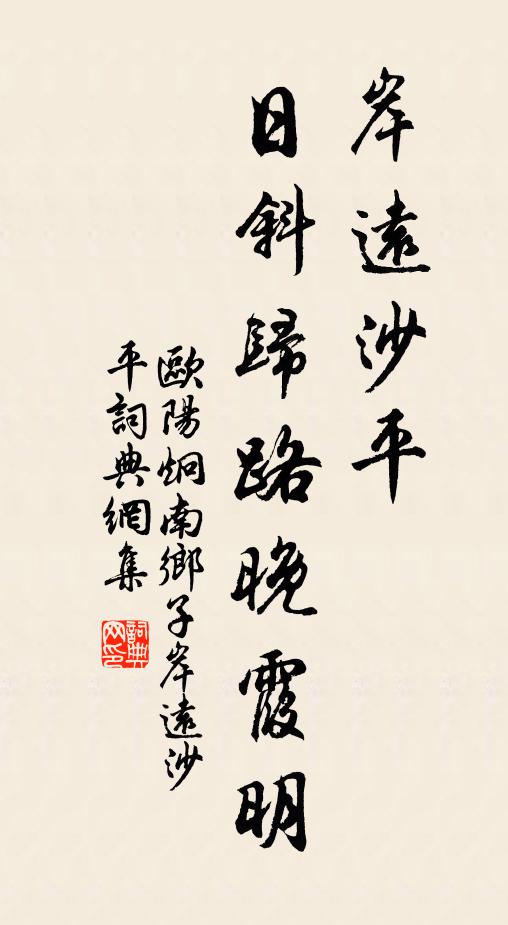 岸遠沙平
日斜歸路晚霞明
歐陽炯南鄉子岸遠沙
平詞典網集
詞典
网印